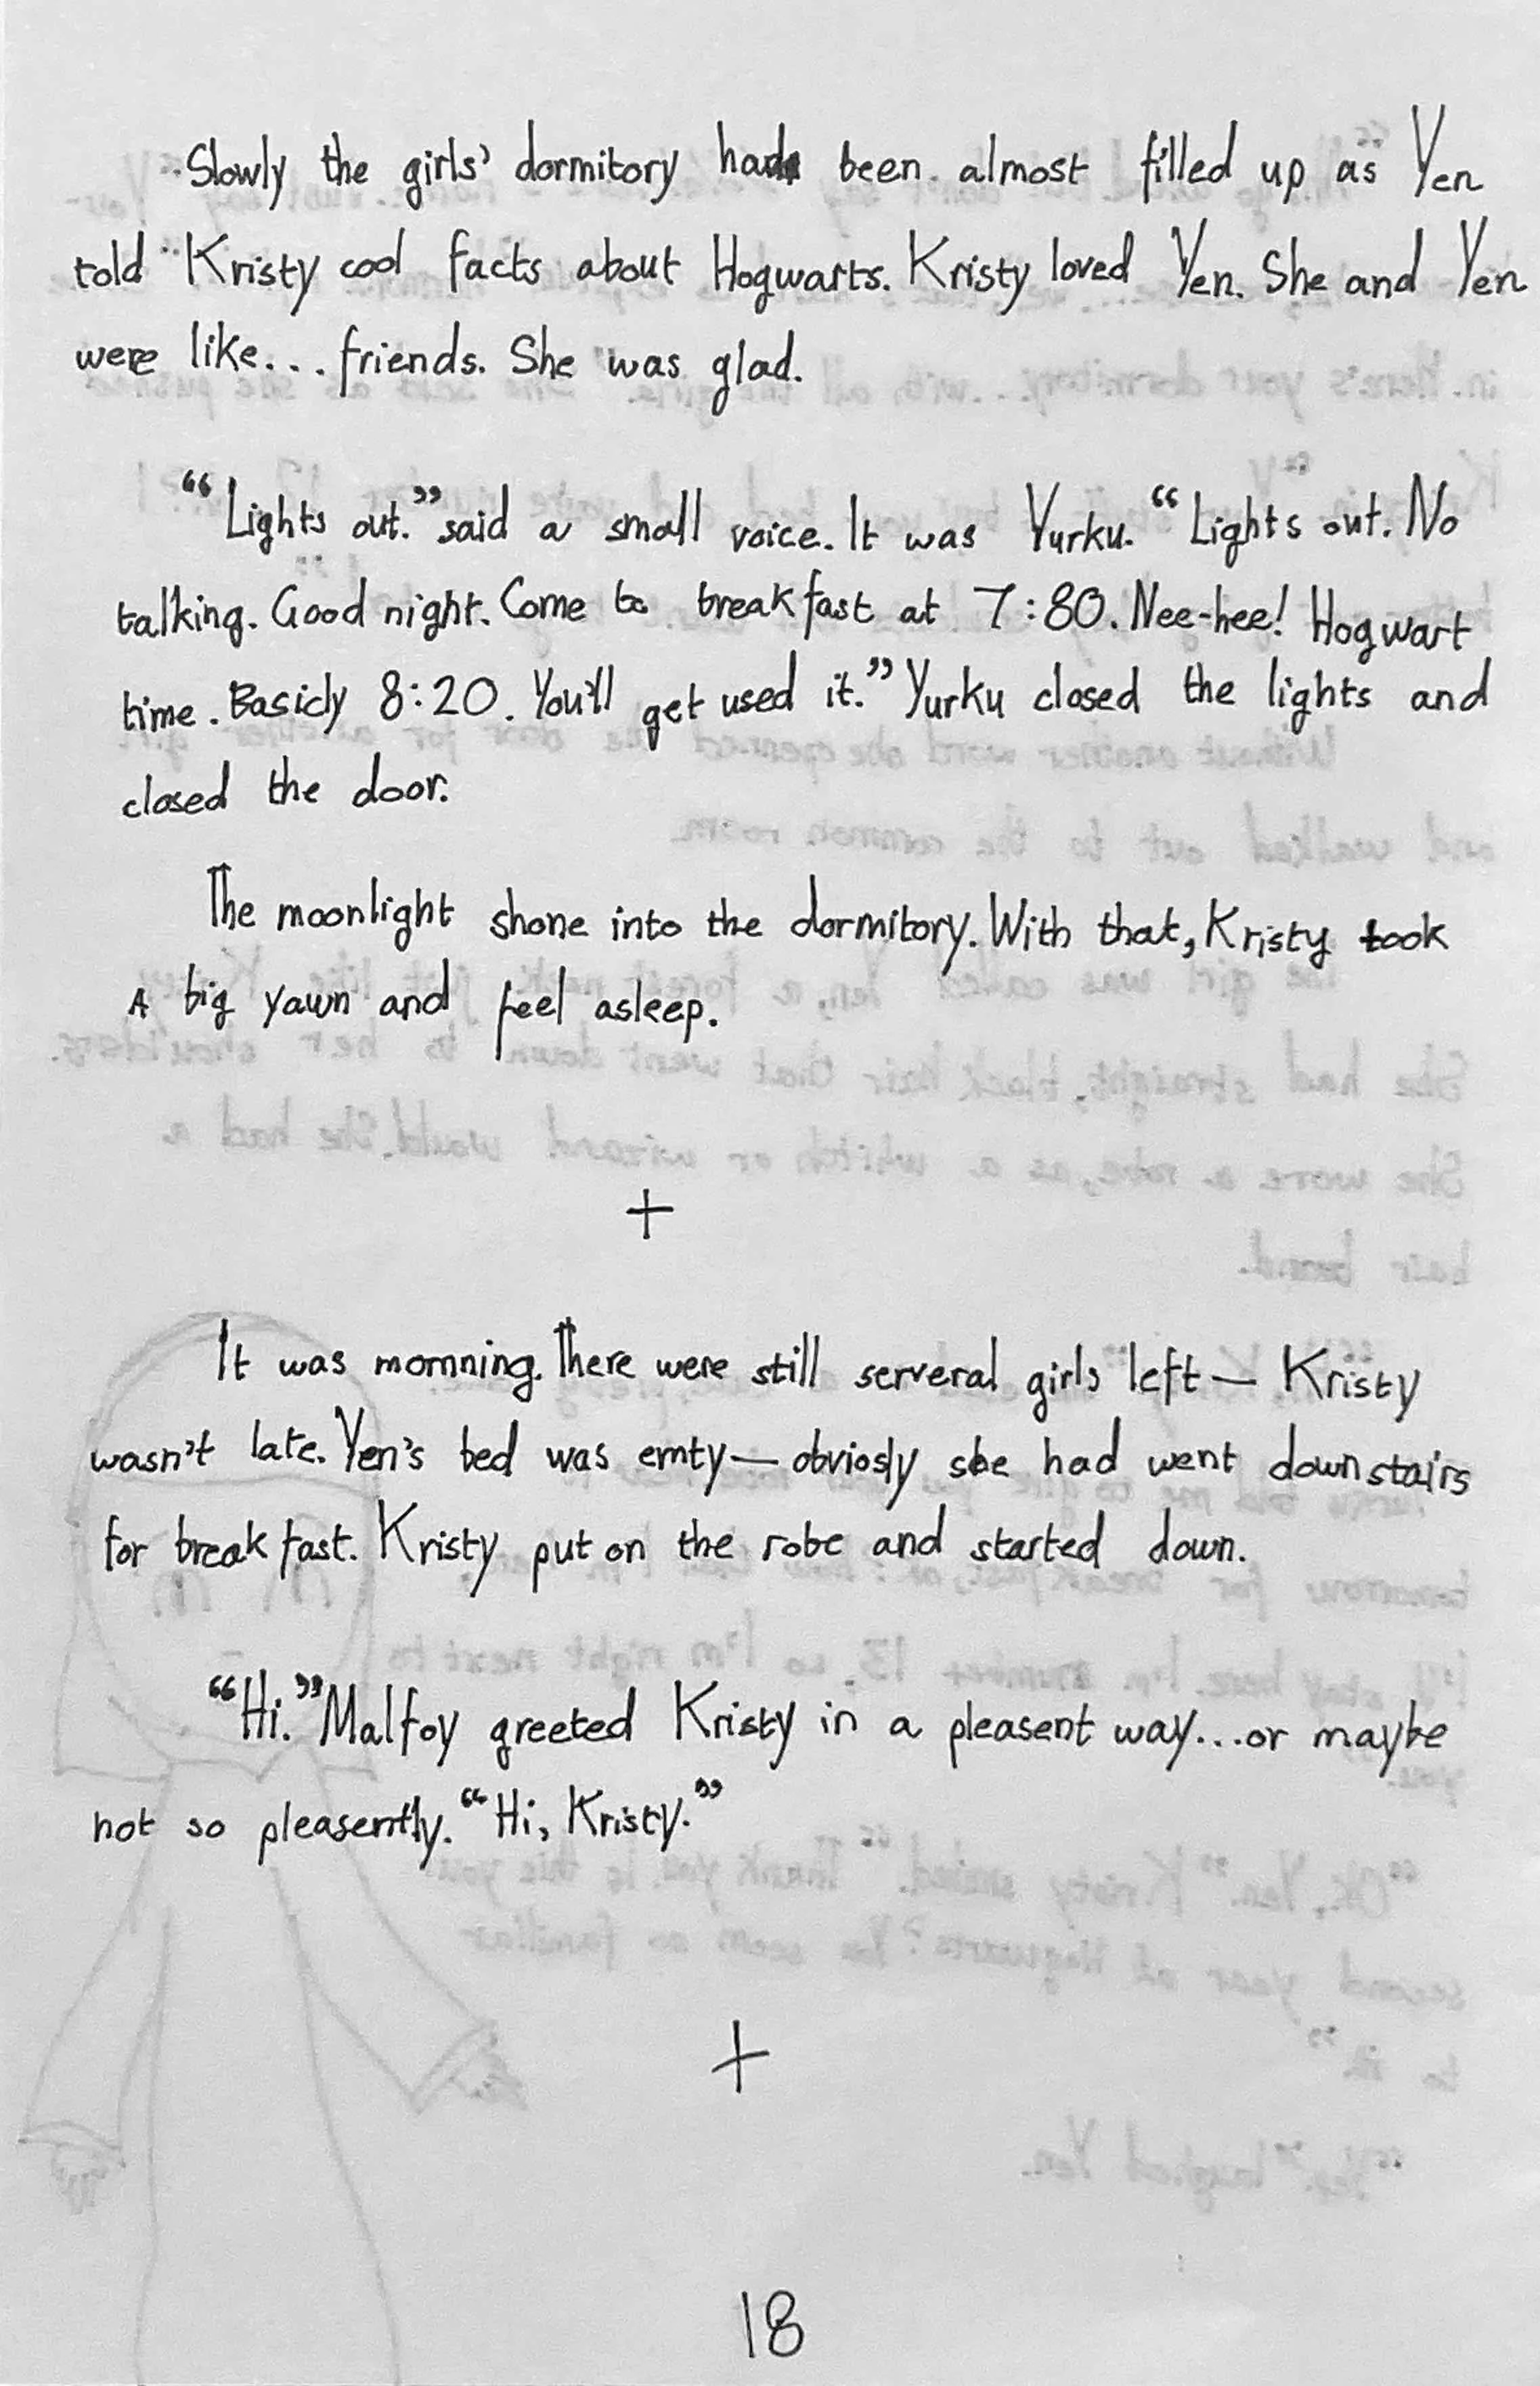 Slowly the girls' dormitory had been almost filled up as Yen
told Kristy cool facts about Hogwarts. Kristy loved Yen. She and Yen
were like... friends. She was glad.
"Lights out." said a small voice. It was Yurku. "Lights out. No
talking. Good night. Come to breakfast at 7:80. Nee-hee! Hogwart
time. Basicly 8:20. You'll get used it." Yurku closed the lights and
closed the door.
The moonlight shone into the dormitory. With that, Kristy took
A big yawn and feel asleep.
+
It was mornning. There were still serveral girls left — Kristy
wasn't late. Yen's bed was emty — obviosly she had went downstairs
for breakfast. Kristy put on the robe and started down.
"Hi." Malfoy greeted Kristy in a pleasent way...or maybe
not so pleasently. "Hi, Kristy."
+
18